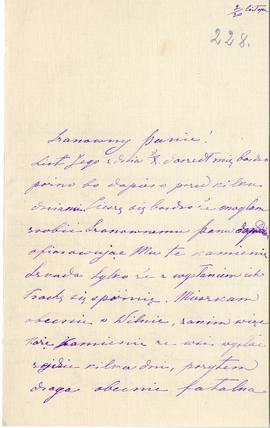 228.
Szanowny Panie!
List Jego z dnia doszedł mię bardzo
późno bo dopiero przed kilku
dniami. Cieszę się bardzo że mogłam
zrobić Szanownemu Panu
ofiarowując Mu te kamienie
szkoda tylko że z wysłaniem ich
trochę się spóźnię. Mieszkam
obecnie w Wilnie, zanim więc
każę kamienie ze wsi wysłać
zejdzie kilka dni, przytem
droga obecnie fatalna